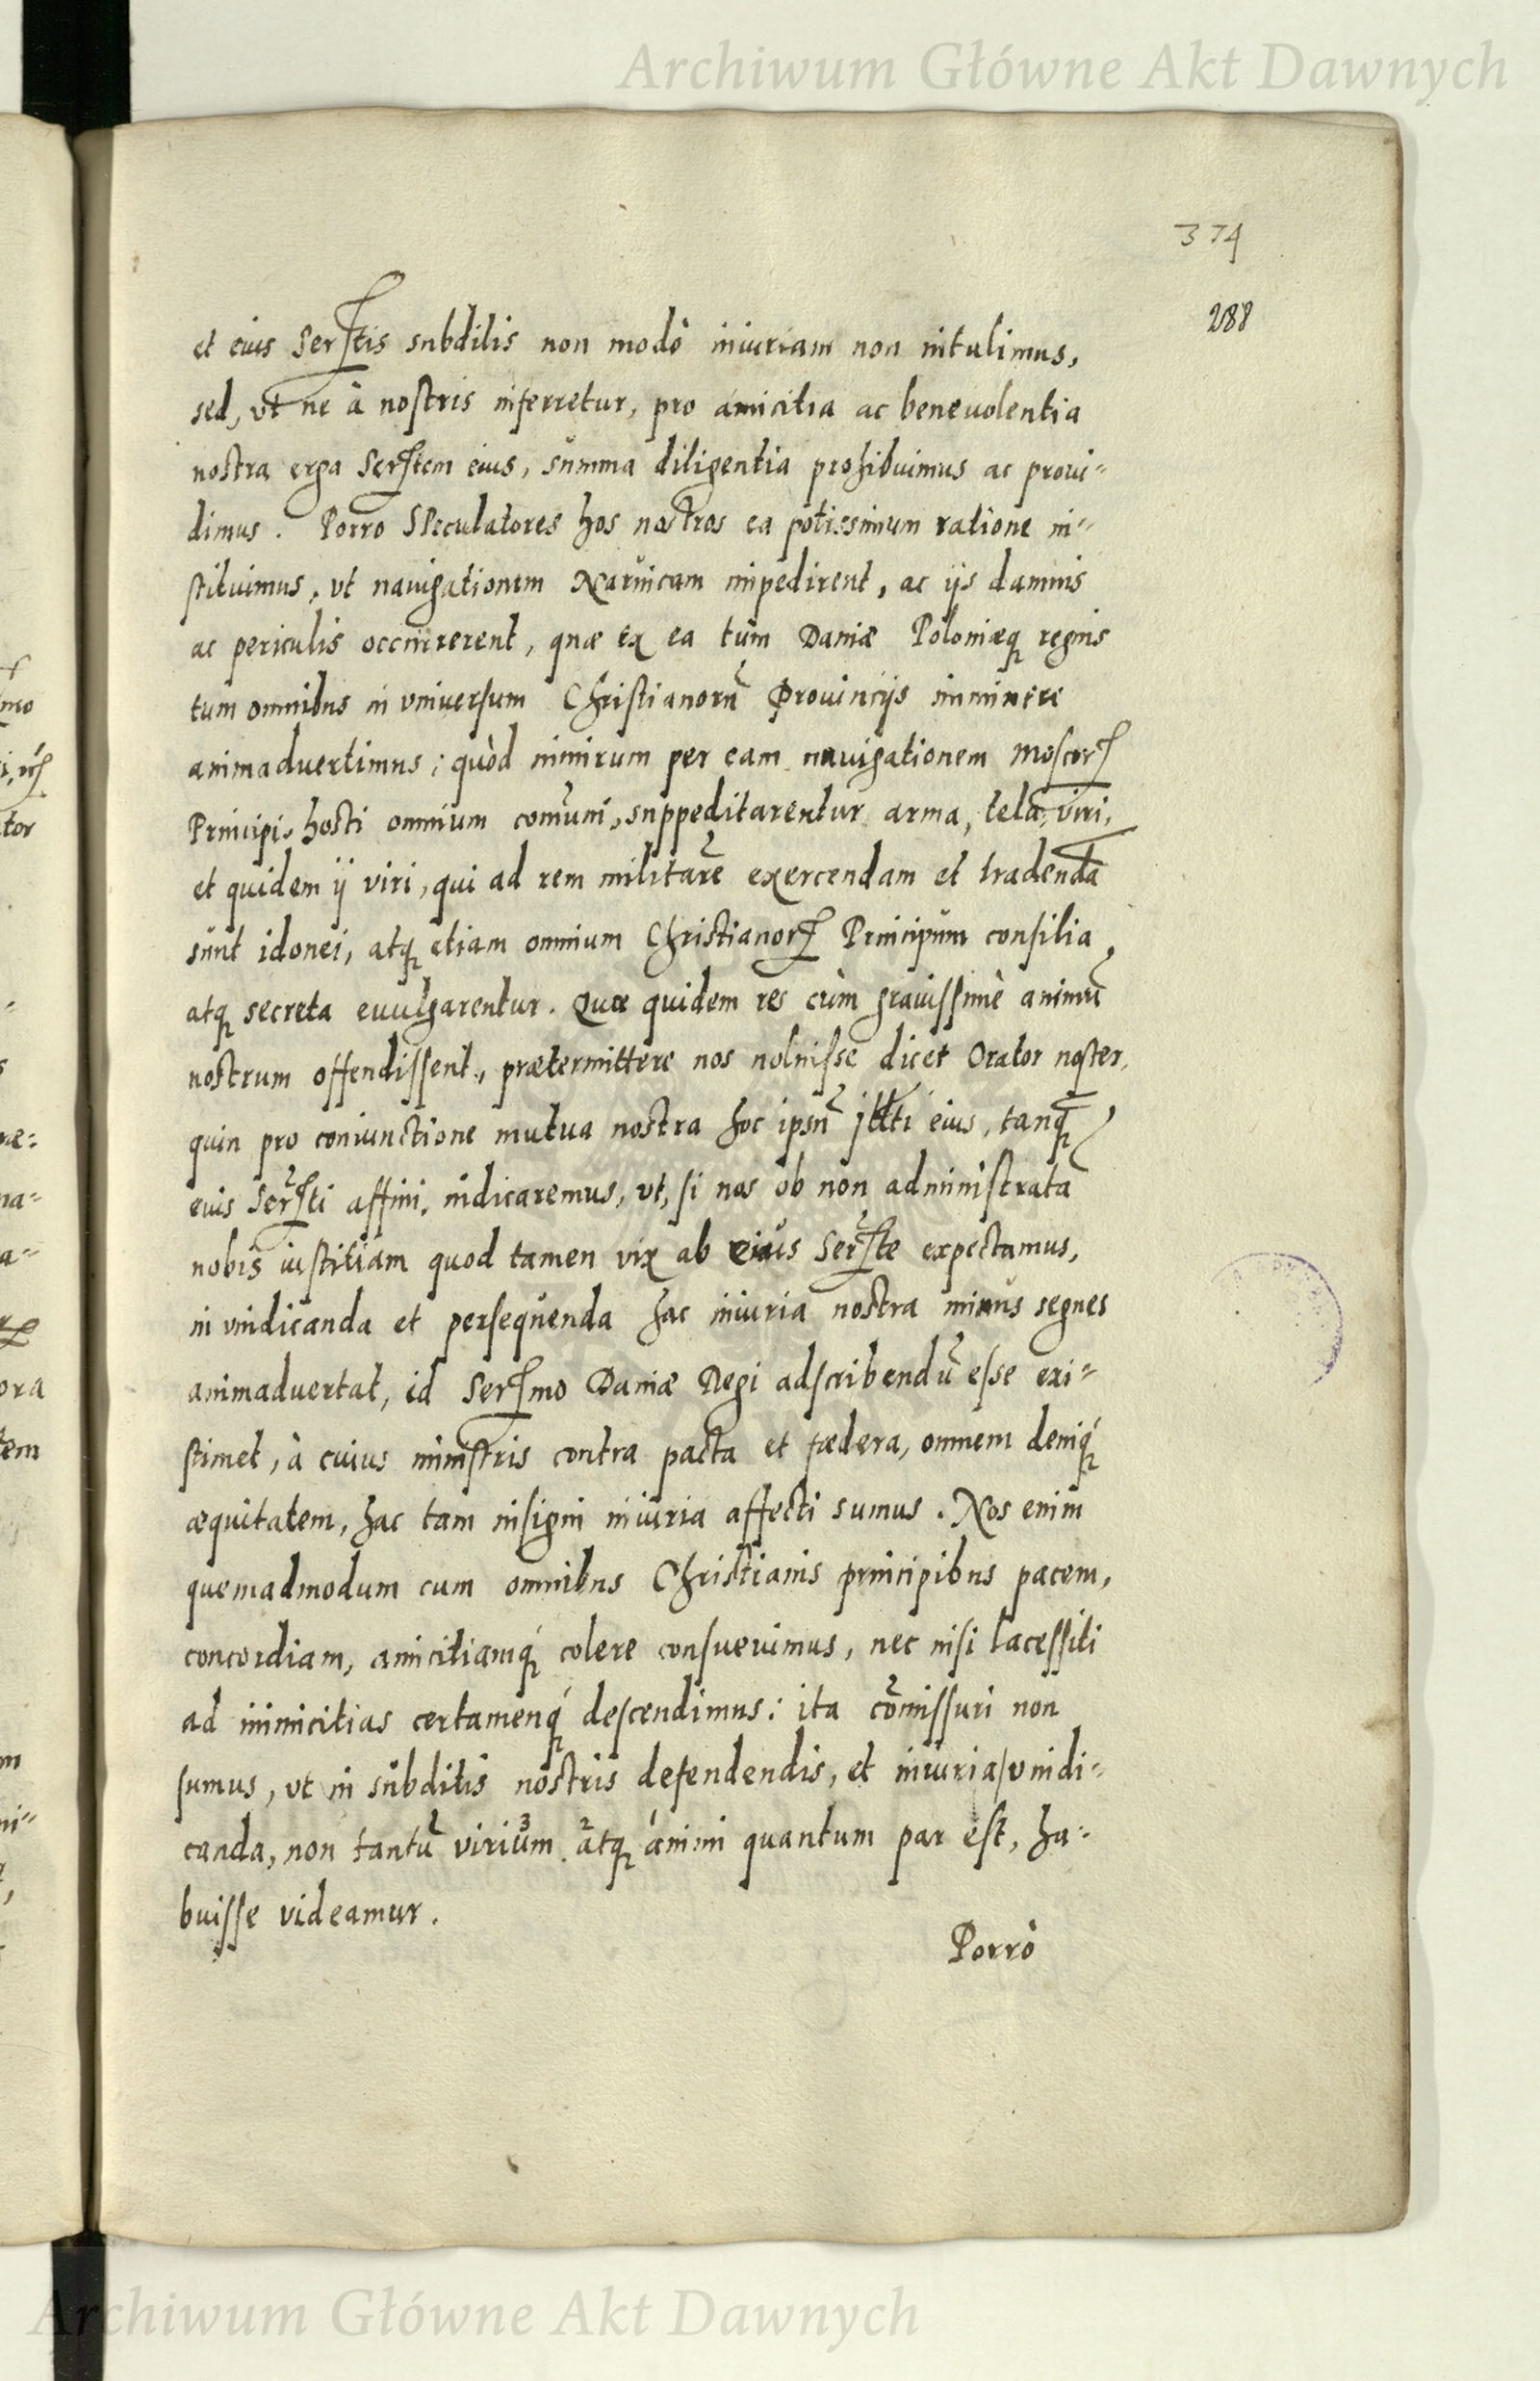 Archiwum Główne Akt Dawnych
374
288
et eius Serſtis subditis non modò iniuriam non intulimus,
sed, vt ne à noſtris inferretur, pro amicitia ac beneuolentia
nostra erga Serſtem eius, summa diligentia prohibuimus ac proui-
dimus. Porro SPeculatores hos nostros ea potissimum ratione in-
ſtituimus, vt nauigationem Naruicam impedirent, ac ijs damnis
ac periculis occurrerent, quæ ex ea tùm Daniæ Poloniæq regnis
tum omnibus in vniuerſum Chriſtianorũ Prouincijs imminere
animaduertimus; quòd nimirum per eam nauigationem Moſcorꝝ
Principi, hosti omnium comũni, suppeditarentur arma, tela, viri,
et quidem ij viri, qui ad rem militarẽ exercendam et tradendã
sunt idonei, atq etiam omnium Christianorꝝ Principum conſilia,
atq secreta euulgarentur. Quæ quidem res cùm grauiſſimè animũ
nostrum offendiſſent, prætermittere nos noluiſse dicet Orator noſter,
quin pro coniunctione mutua nostra hoc ipsũ Jllti eius, tanq̃
eius Serſti affini, indicaremus, vt, ſi nos ob non adminiſtratã
nobis iuſtitiam quod tamen vix ab eius Serſte expectamus,
in vindicanda et perſequenda hac iniuria nostra minus segnes
animaduertat, id Serſmo Daniæ Regi adſcribendũ eſse exi-
ſtimet, à cuius miniſtris contra pacta et fœdera, omnem deniq́
æquitatem, hac tam inſigni iniuria affecti sumus. Nos enim
quemadmodum cum omnibus Chriſtianis principibus pacem,
concordiam, amicitiamq́ colere conſueuimus, nec niſi laceſſiti
ad inimicitias certamenq́ deſcendimus: ita cõmiſſuri non
ſumus, vt in subditis nostris defendendis, et iniuria vindi-
canda, non tantũ virium atq animi quantum par eſt, ha-
buiſſe videamur.
Porrò
Archiwum Główne Akt Dawnych